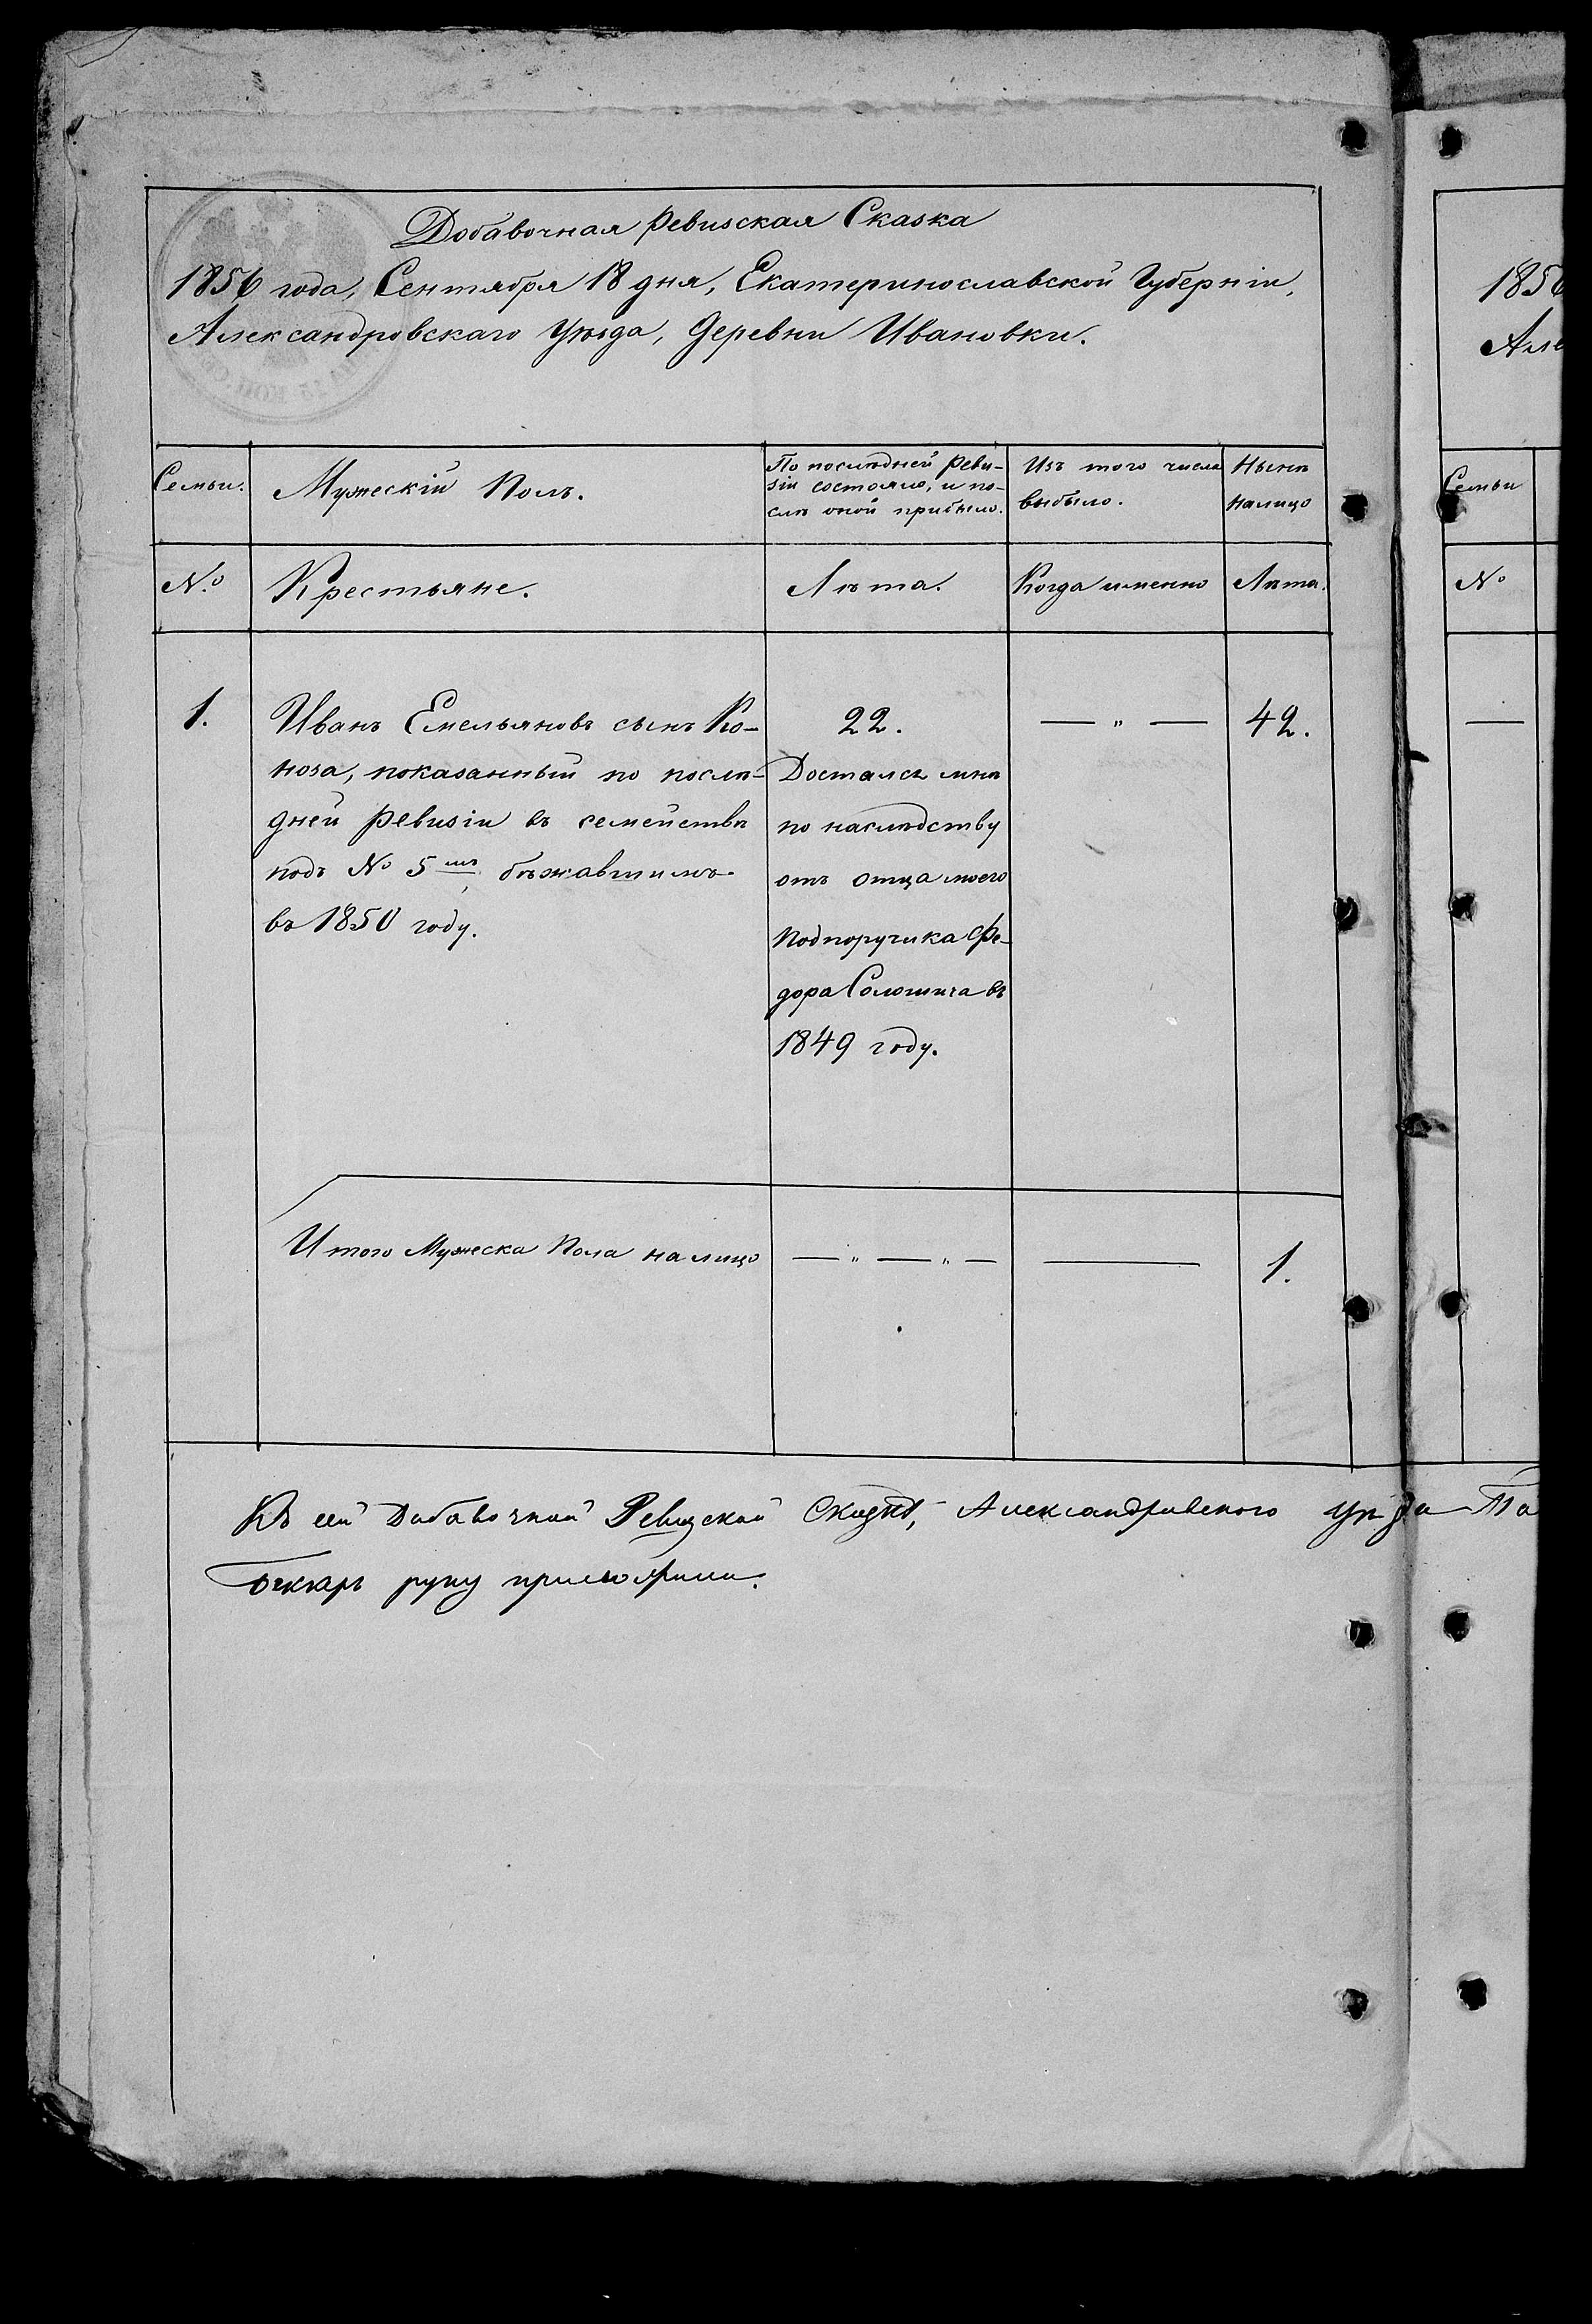 Добавочная Ревизская Сказка
1856 года, Сентября 18 дня, Екатеринославской Губерніи,
Александровскаго Уѣзда, Деревни Ивановки.
Семьи.
Мужескій Полъ.
По послѣдней Реви-
зіи состояло, и по-
слѣ оной прибыло.
Изъ того числа
выбыло.
Нынѣ
налицо
№.
Крестьяне.
Лѣта.
Когда именно
Лѣта.
1.
Иванъ Емельяновъ сынъ Ко-
ноза, показанный по послѣ-
дней Ревизіи въ семействѣ
подъ № 5мъ, бѣжавшимъ
въ 1850 году.
22.
Достался мнѣ
по наслѣдству
отъ отца моего
Подпоручика Фе-
дора Солошича въ
1849 году.
— " —
42.
Итого Мужеска Пола налицо
— " — " —
—
1.
Къ сей Добавочной Ревизской Сказкѣ, Александровского уѣзда
руку приложили.
1856
Але
Семьи
№
—